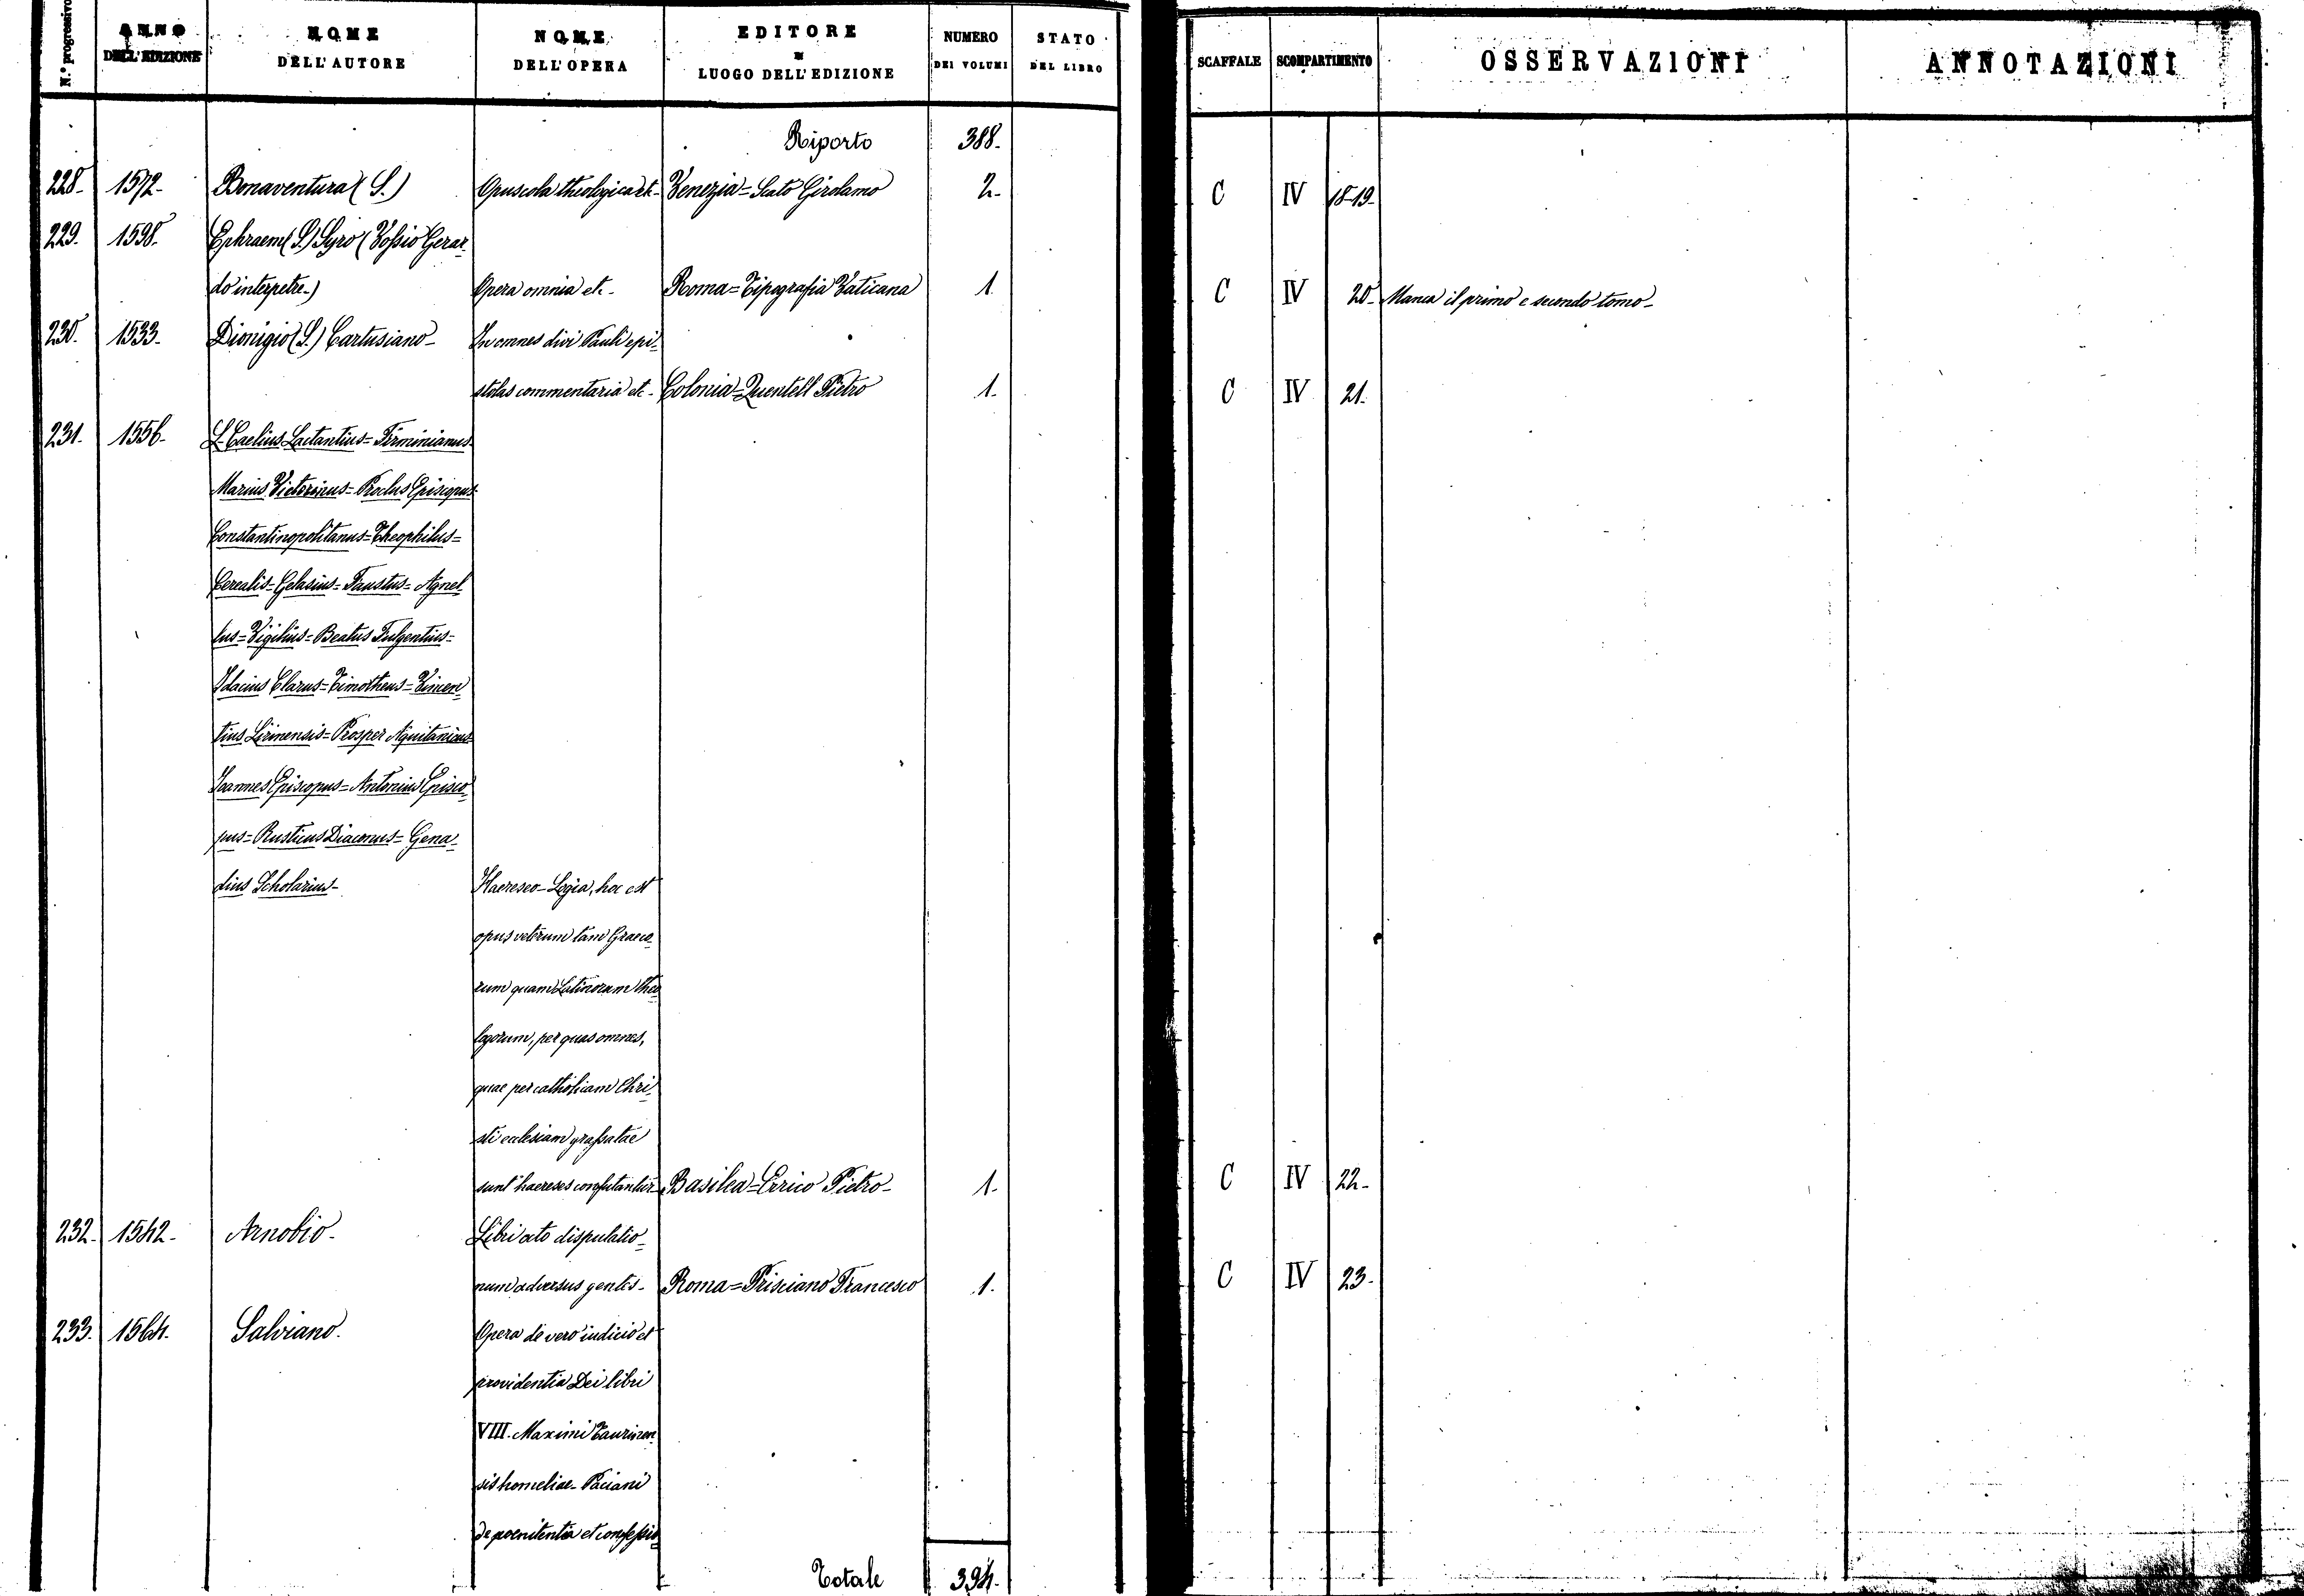 N.° progressivo ANNO DELL'EDIZIONE NOME DELL'AUTORE NOME DELL'OPERA EDITORE E LUOGO DELL'EDIZIONE NUMERO DEI VOLUMI STATO DEL LIBRO SCAFFALE SCOMPARTIMENTO OSSERVAZIONI ANNOTAZIONI
Riporto 388.
228. 1572. Bonaventura (S.) Opuscola theologica et. Venezia = Scoto Girolamo 2. C IV 18-19.
229. 1598. Ephraem (S.) Syro (Vossio Gerar-
do interpetre.) Opera omnia etc. Roma = Tipografia Vaticana 1. C IV 20. Manca il primo e secondo tomo.
230. 1533. Dionigio (S.) Cartusiano. In omnes divi Pauli epi-
stolas commentaria etc. Colonia = Quentell Pietro 1. C IV 21.
231. 1556. L. Caelius Lactantius = Firminianus
Marius Victorinus = Proclus Episcopus
Constantinopolitanus = Theophilus =
Cerealis = Gelasius = Faustus = Agnel-
lus = Vigilius = Beatus Fulgentius =
Idacius Clarus = Timotheus = Vincen-
tius Lirinensis = Prosper Aquitanicus
Joannes Episcopus = Antonius Episco-
pus = Rusticus Diaconus = Gena-
dius Scholarius. Haereseo-Logia, hoc est
opus veterum tam Graeco-
rum quam Latinorum theo-
logorum, per quas omnes,
quae per catholicam Chri-
sti ecclesiam grassatae
sunt haereses confutantur. Basilea = Errico Pietro. 1. C IV 22.
232. 1542. Arnobio. Libri octo disputatio-
num adversus gentes. Roma = Prisciano Francesco 1. C IV 23.
233. 1564. Salviano. Opera de vero iudicio et
providentia Dei libri
VIII. Maximi Taurinen-
sis homeliae. Paciani
de poenitentia et confessio-
Totale 394.